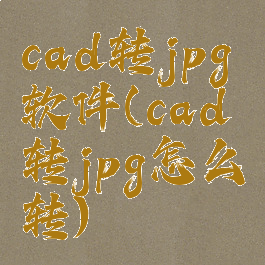 cad转jpg
软件(cad
转jpg怎么
转)